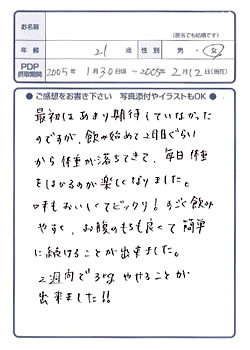 お名前
(匿名でも結構です)
年齢 21歳 性別 男・女
PDP摂取期間 2005年 1月30日頃 ～2005年 2月12日(現在)
●ご感想をお書き下さい 写真添付やイラストもOK●
最初はあまり期待していなかった
のですが、飲み始めて2日目ぐらい
から体重が落ちてきて、毎日体重
をはかるのが楽しくなりました。
味もおいしくてビックリ!すごく飲み
やすく、お腹のもちも良くて簡単
に続けることが出来ました。
2週間で3kgやせることが
出来ました!!